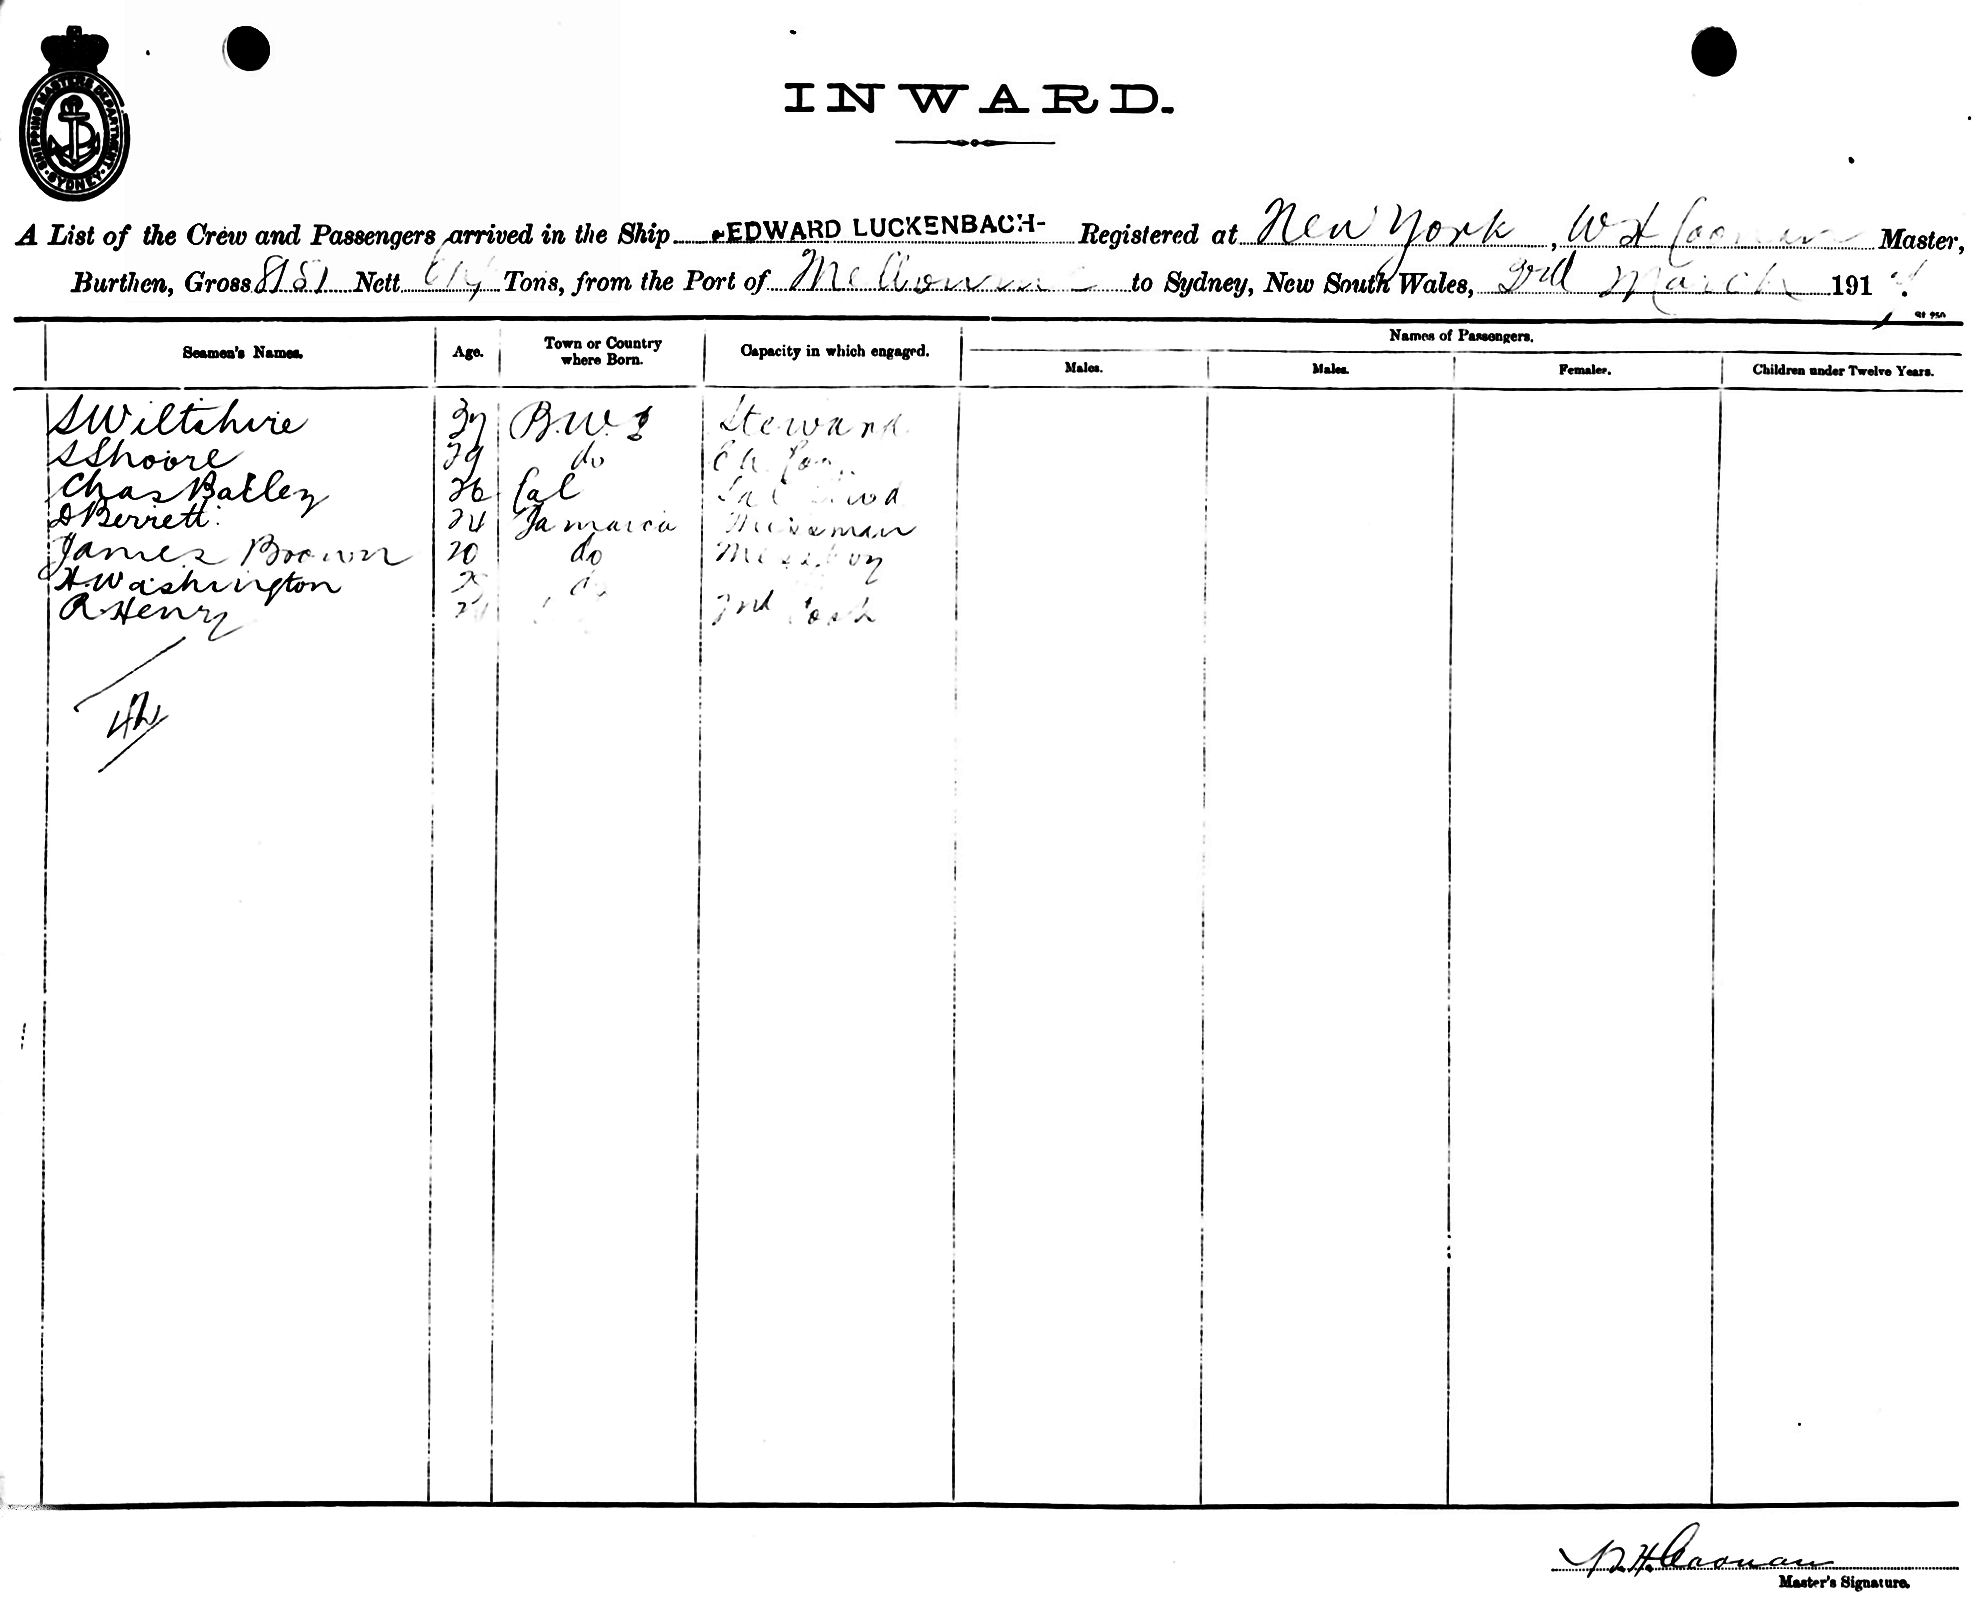 SHIPPING MASTERS DEPARTMENT · SYDNEY ·
INWARD.
A List of the Crew and Passengers arrived in the Ship EDWARD LUCKENBACH- Registered at New York, W H Coonan Master,
Burthen, Gross 8151 Nett Tons, from the Port of Melbourne to Sydney, New South Wales, March 191
Seamen's Names. Age. Town or Country where Born. Capacity in which engaged. Names of Passengers.
Males. Males. Females. Children under Twelve Years.
S Wiltshire 37 B.W.I Steward
S Shoore 29 do
Chas Bailey 26 Cal
D Berrett 24 Jamaica Messman
James Broown 20 do Messboy
H. Washington do
R Henry 2nd Cook
42
W.H. Coonan
Master's Signature.